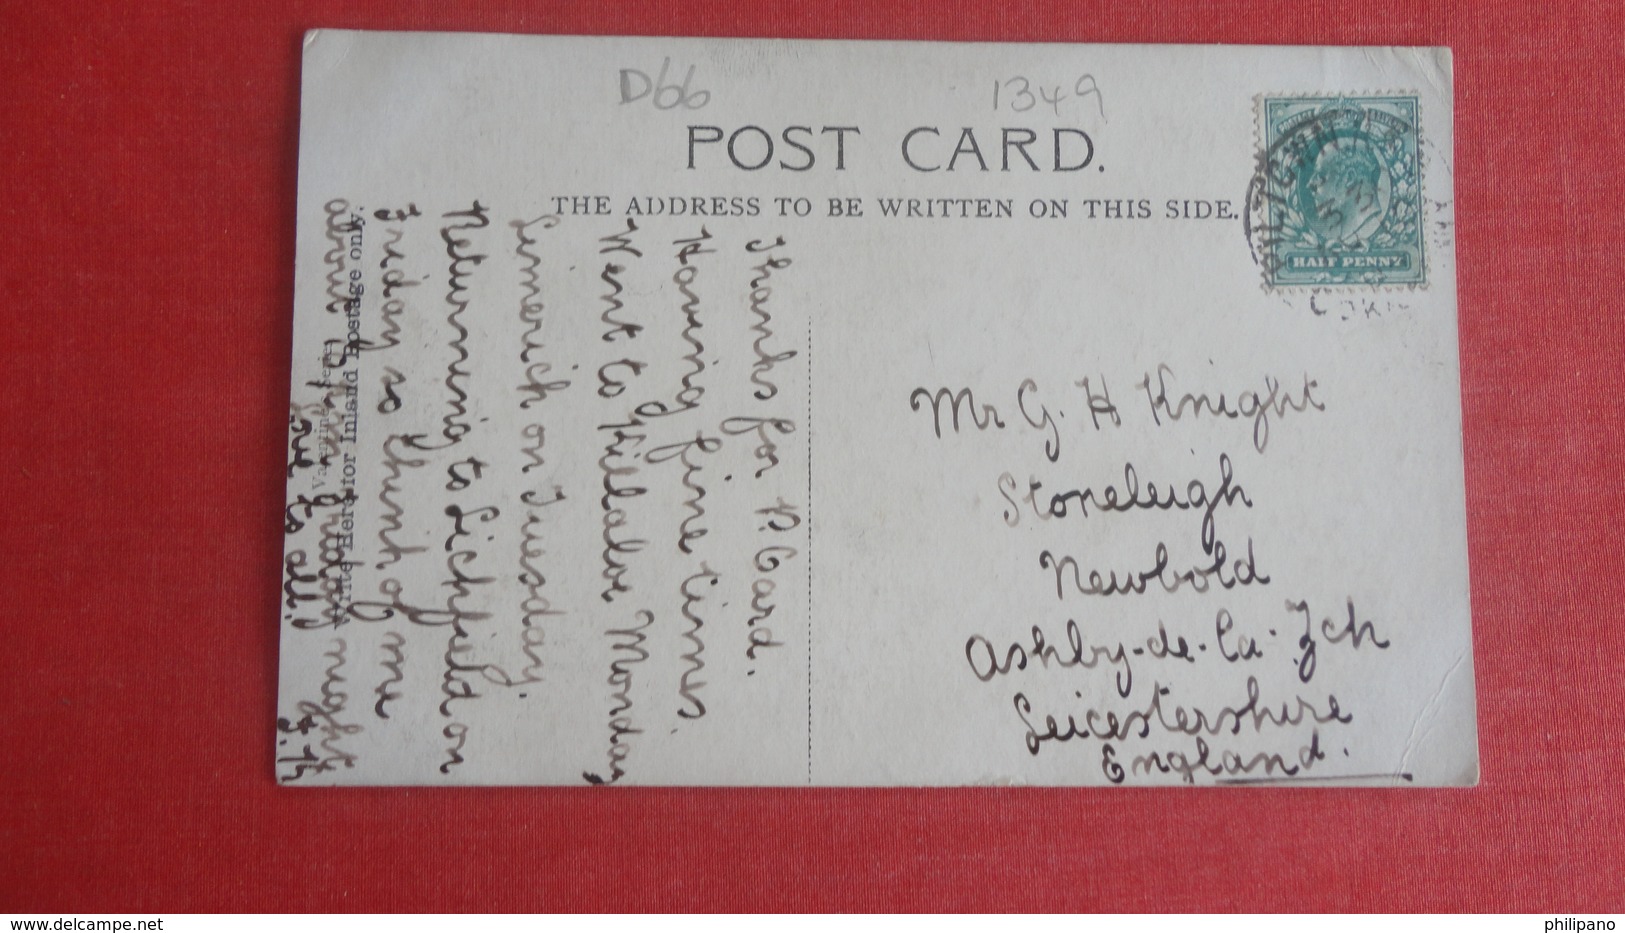 D66
1349
POST CARD.
THE ADDRESS TO BE WRITTEN ON THIS SIDE.
HALF PENNY
Thanks for P. Card.
Having fine times
Went to Killaloe Monday
Limerick on Tuesday.
Returning to Lichfield on
Friday so think of me
about 9 p.m. Friday night
Love to all.
Write Here for Inland Postage only.
Mr G. H Knight
Stoneleigh
Newbold
Ashby-de-la-Zch
Leicestershire
England.
delcampe.net
philipano